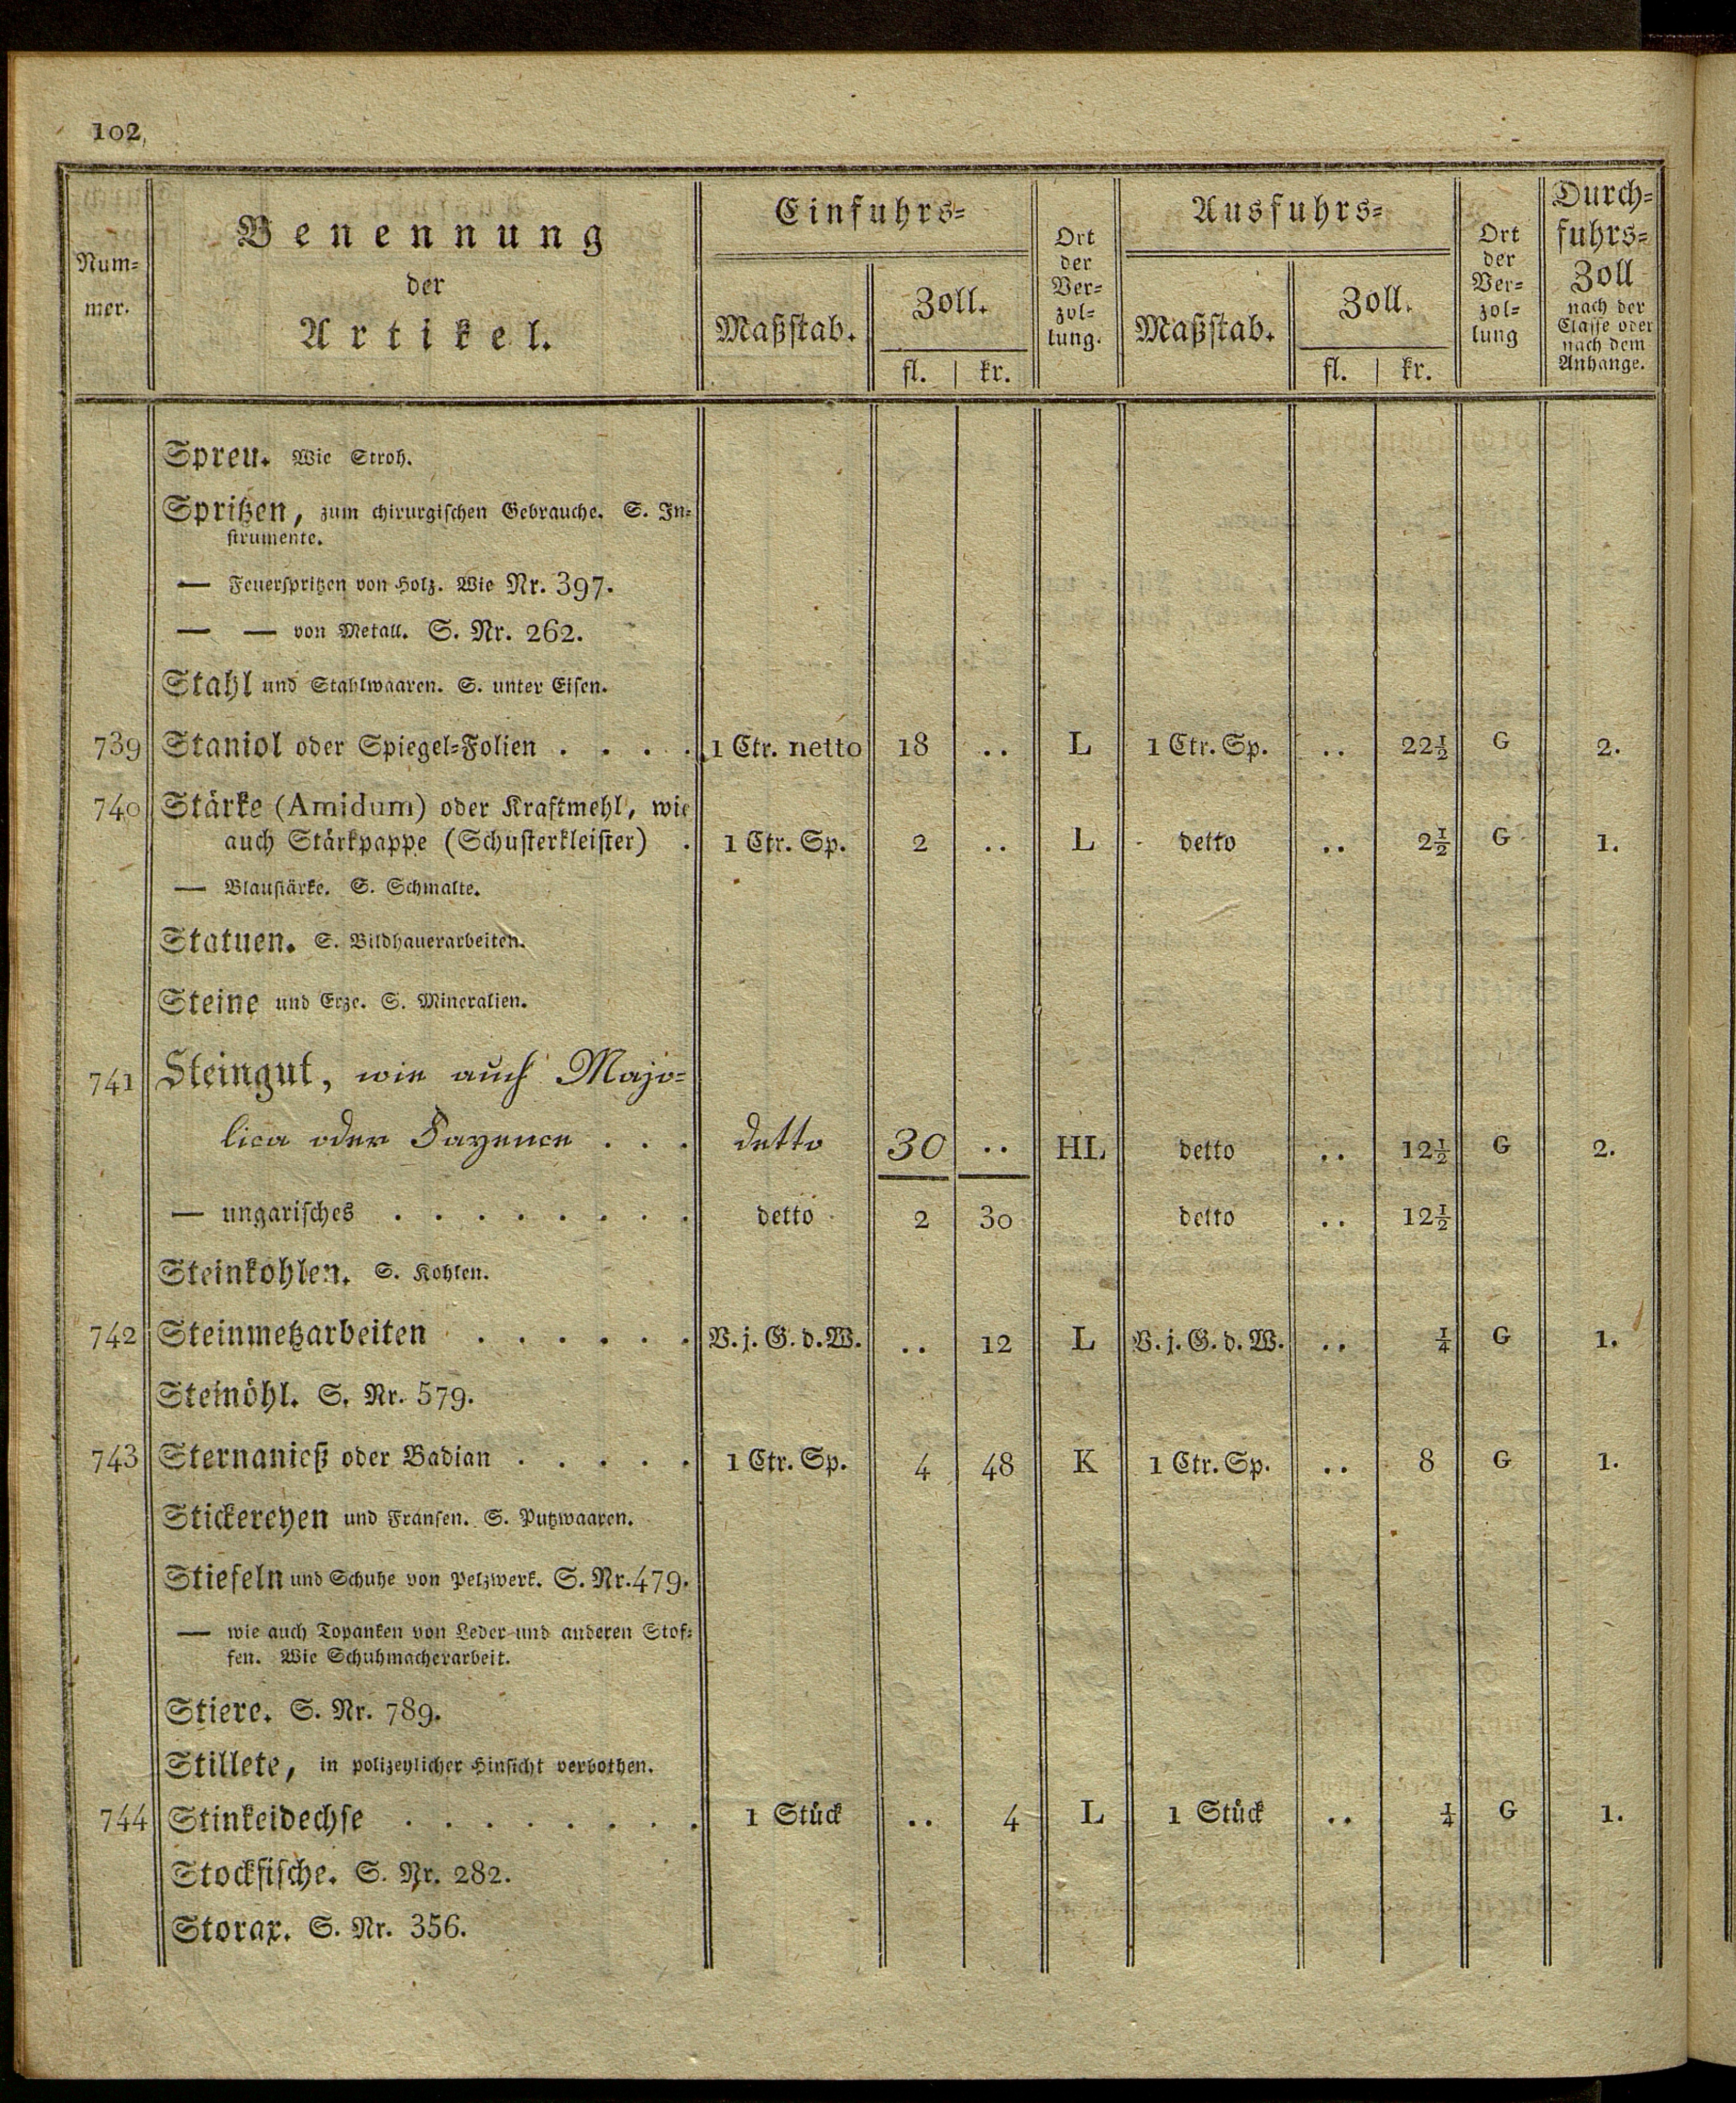 102
Num-
mer.
Benennung
der
Artikel.
Einfuhrs-
Maßstab.
Zoll.
fl. | kr.
Ort
der
Ver-
zol-
lung.
Ausfuhrs-
Maßstab.
Zoll.
fl. | kr.
Ort
der
Ver-
zol-
lung
Durch-
fuhrs-
Zoll
nach der
Classe oder
nach dem
Anhange.
Spreu. Wie Stroh.
Spritzen, zum chirurgischen Gebrauche. S. In-
strumente.
— Feuerspritzen von Holz. Wie Nr. 397.
— — von Metall. S. Nr. 262.
Stahl und Stahlwaaren. S. unter Eisen.
739 Staniol oder Spiegel-Folien . . . . 1 Ctr. netto 18 .. L 1 Ctr. Sp. .. 22½ G 2.
740 Stärke (Amidum) oder Kraftmehl, wie
auch Stärkpappe (Schusterkleister) . 1 Ctr. Sp. 2 .. L detto .. 2½ G 1.
— Blaustärke. S. Schmalte.
Statuen. S. Bildhauerarbeiten.
Steine und Erze. S. Mineralien.
741 Steingut, wie auch Majo-
lica oder Fayence . . . detto 30 .. HL detto .. 12½ G 2.
— ungarisches . . . . . . . . detto 2 30 detto .. 12½
Steinkohlen. S. Kohlen.
742 Steinmetzarbeiten . . . . . . V. j. G. d. W. .. 12 L V. j. G. d. W. .. ¼ G 1.
Steinöhl. S. Nr. 579.
743 Sternanieß oder Badian . . . . . 1 Ctr. Sp. 4 48 K 1 Ctr. Sp. .. 8 G 1.
Stickereyen und Fransen. S. Putzwaaren.
Stiefeln und Schuhe von Pelzwerk. S. Nr. 479.
— wie auch Topanken von Leder und anderen Stof-
fen. Wie Schuhmacherarbeit.
Stiere. S. Nr. 789.
Stillete, in polizeylicher Hinsicht verbothen.
744 Stinkeidechse . . . . . . . . 1 Stück .. 4 L 1 Stück .. ¼ G 1.
Stockfische. S. Nr. 282.
Storax. S. Nr. 356.